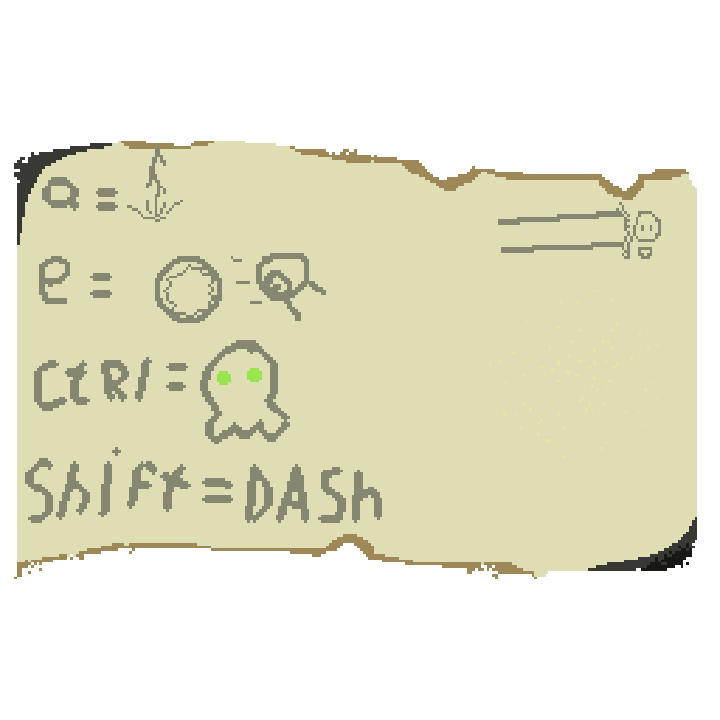 a =
e =
CtRl =
ShiFt = DASh